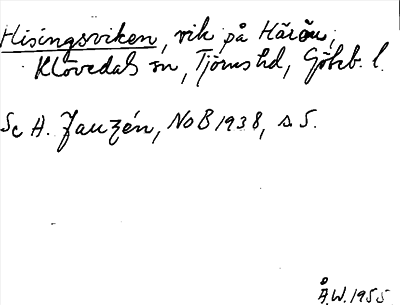 Hisingsviken, vik på Härön,
Klövedals sn, Tjörns hd, Götb. l.
Se A. Janzén, NoB 1938, s. 5.
Å.W. 1955